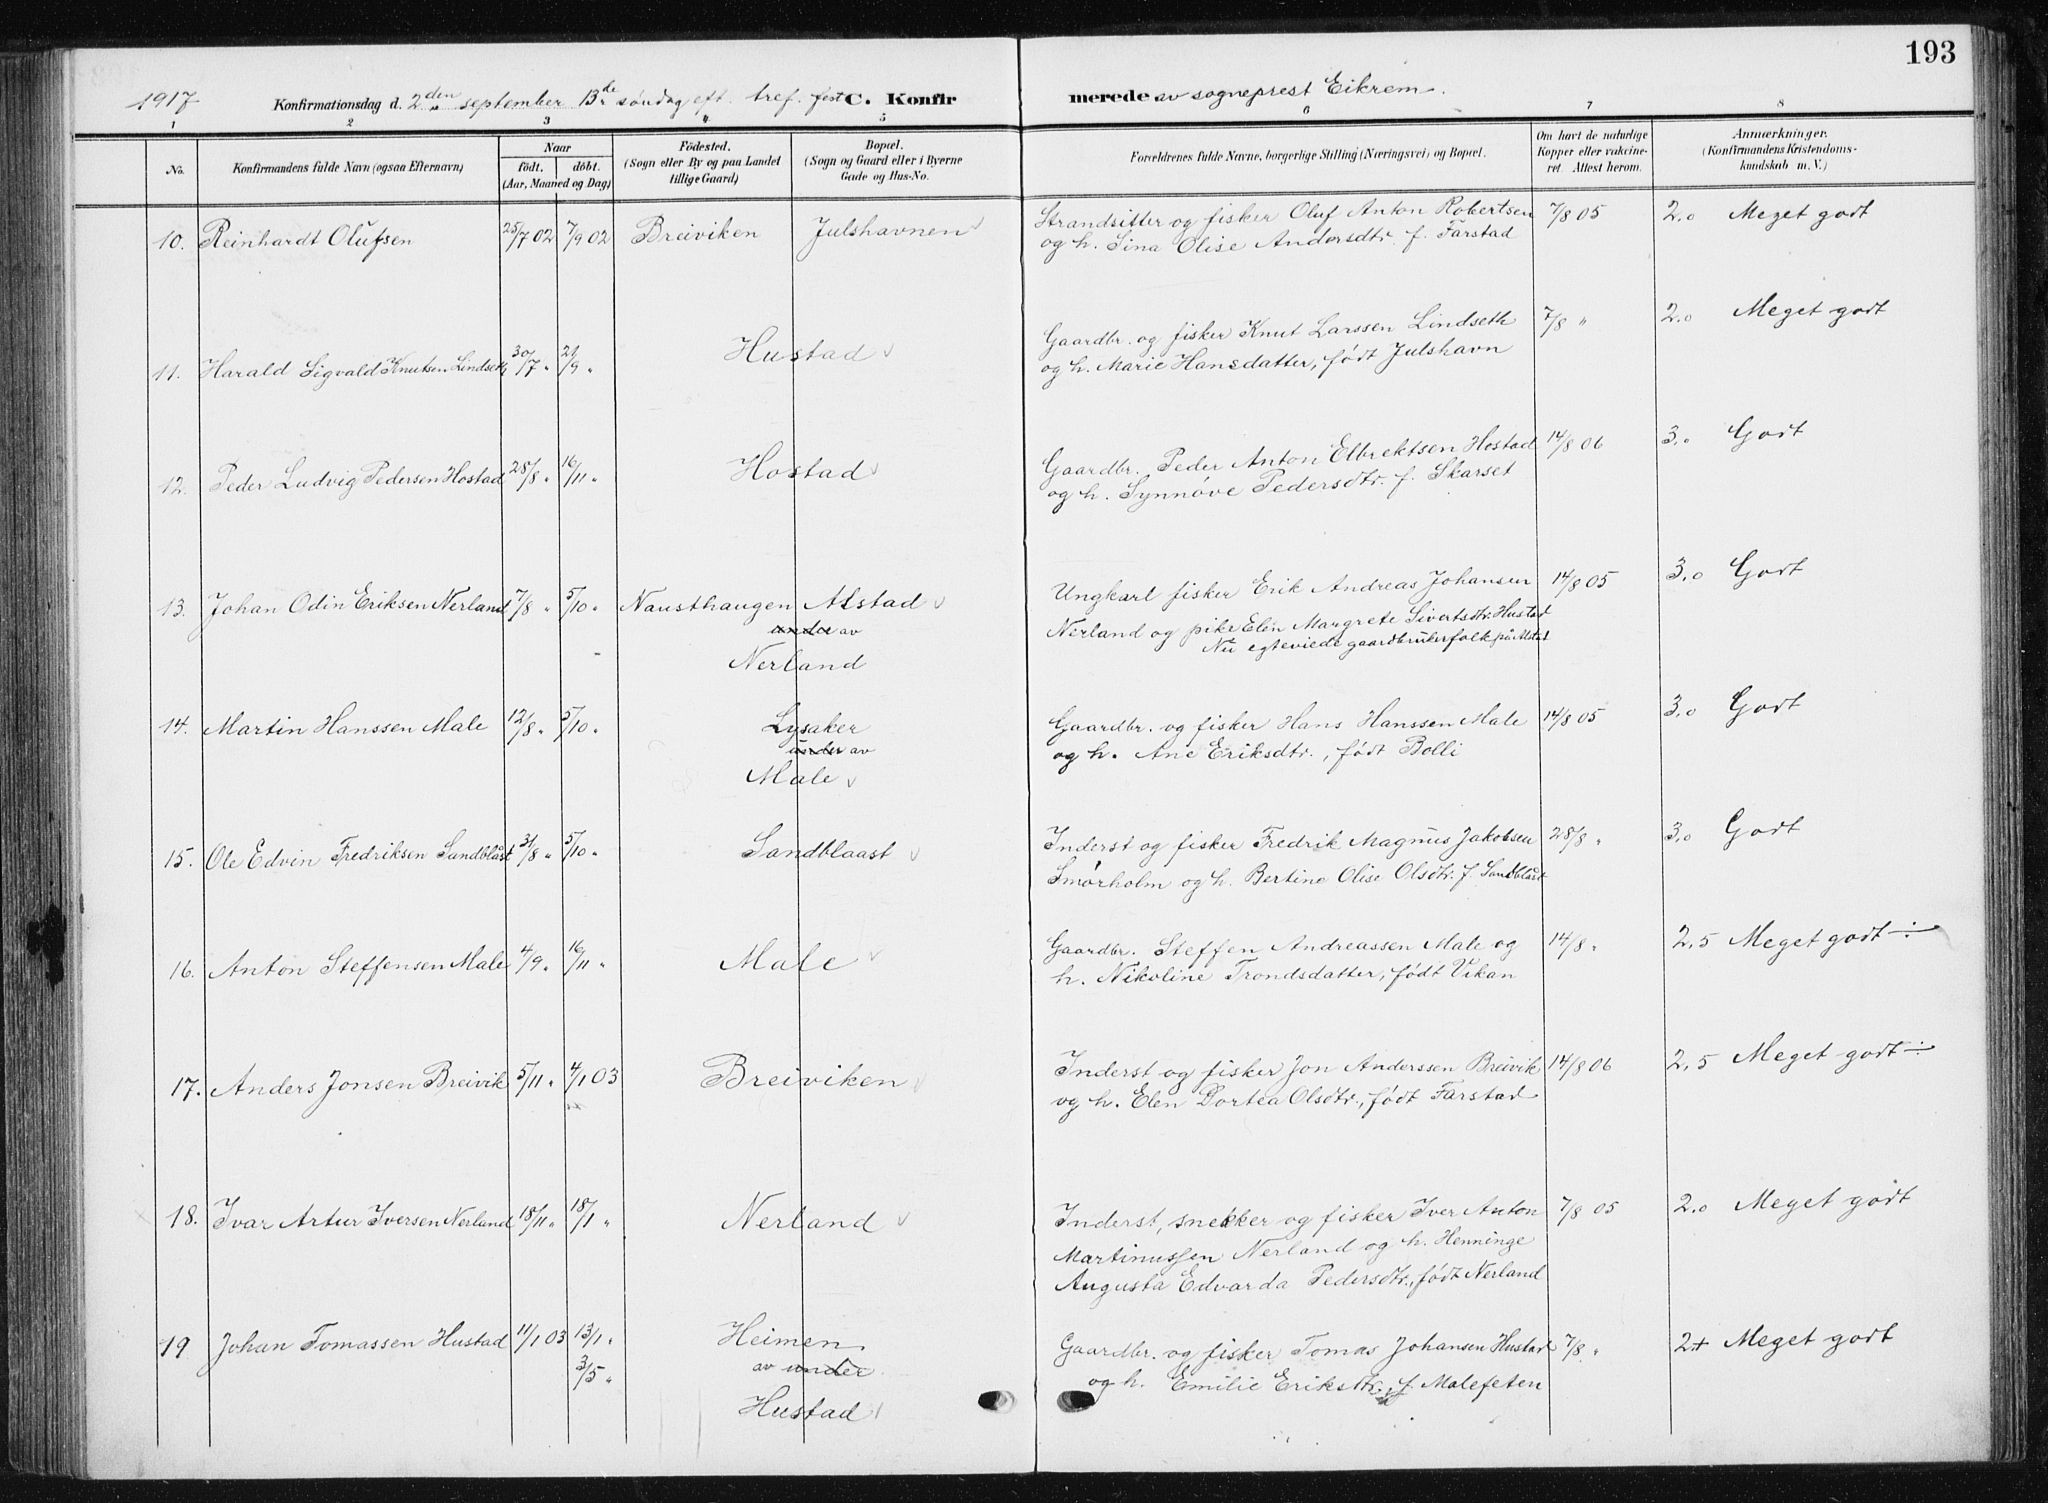 193
1917 Konfirmationsdag d. 2den september 13de søndag eft. tref. fest C. Konfirmerede av sogneprest Eikrem.
1 2 3 4 5 6 7 8
No. Konfirmandens fulde Navn (ogsaa Efternavn) Naar født. døbt. (Aar, Maaned og Dag) Fødested. (Sogn eller By og paa Landet tillige Gaard) Bopæl. (Sogn og Gaard eller i Byerne Gade og Hus-No. Forældrenes fulde Navne, borgerlige Stilling (Næringsvei) og Bopæl. Om havt de naturlige Kopper eller vakcineret. Attest herom. Anmærkninger. (Konfirmandens Kristendomskundskab m. V.)
10. Reinhardt Olufsen 25/7 02 7/9 02 Breiviken Julshavnen Strandsitter og fisker Oluf Anton Robertsen 7/8 05 2.0 Meget godt
og h. Sina Olise Andersdtr. f. Farstad
11. Harald Sigvald Knutsen Lindseth 30/7 " 21/9 " Hustad Gaardbr. og fisker Knut Larssen Lindseth 7/8 " 2.0 Meget godt
og h. Marie Hansdatter, født Julshavn
12. Peder Ludvig Pedersen Hostad 28/8 " 16/11 " Hostad Gaardbr. Peder Anton Elbrektsen Hostad 14/8 06 3.0 Godt
og h. Synnøve Pedersdtr. f. Skarset
13. Johan Odin Eriksen Nerland 7/8 " 5/10 " Nausthaugen Alstad Ungkarl fisker Erik Andreas Johansen 14/8 05 3.0 Godt
under av Nerland og pike Elen Margrete Sivertsdtr. Hustad
Nerland Nu egteviede gaardbrukerfolk på Alstad
14. Martin Hanssen Male 12/8 " 5/10 " Lysaker Gaardbr. og fisker Hans Hanssen Male 14/8 05 3.0 Godt
under av og h. Ane Eriksdtr., født Bolli
Male
15. Ole Edvin Fredriksen Sandblåst 31/8 " 5/10 " Sandblaast Inderst og fisker Fredrik Magnus Jakobsen 28/8 " 3.0 Godt
Smørholm og h. Bertine Olise Olsdtr. f. Sandblåst
16. Anton Steffensen Male 4/9 " 16/11 " Male Gaardbr. Steffen Andreassen Male og 14/8 " 2,5 Meget godt ÷
h. Nikoline Trondsdatter, født Vikan
17. Anders Jonsen Breivik 5/11 " 4/1 03 Breiviken Inderst og fisker Jon Anderssen Breivik 14/8 06 2,5 Meget godt ÷
og h. Elen Dortea Olsdtr., født Farstad
18. Ivar Artur Iversen Nerland 18/11 " 18/1 " Nerland Inderst, snekker og fisker Iver Anton 7/8 05 2.0 Meget godt
Martinussen Nerland og h. Henninge
Augusta Edvarda Pedersdtr., født Nerland
19 Johan Tomassen Hustad 11/1 03 13/1 " Heimen Gaardbr. og fisker Tomas Johansen Hustad 7/8 " 2+ Meget godt
3/5 " av under og h. Emilie Eriksdtr., f. Malefeten
Hustad